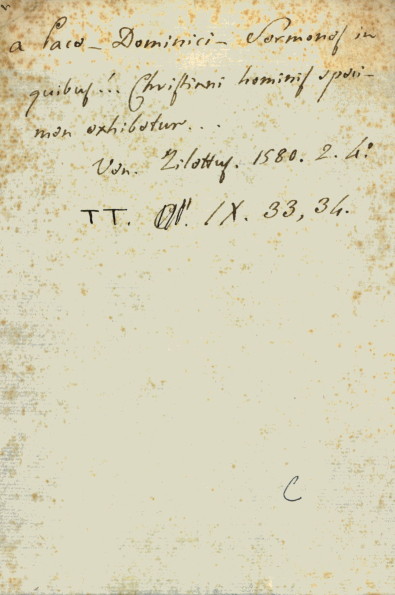 a Pace – Dominici – Sermones in
quibus!.. Christiani hominis speci-
men exhibetur...
Ven. Zilettus. 1580. 2. 4.º
TT. IX. 33, 34.
C